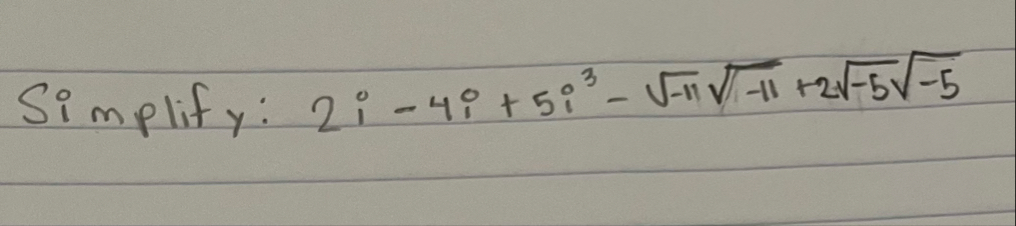 Simplify: 2i - 4i + 5i³ - √-11 √-11 + 2√-5 √-5